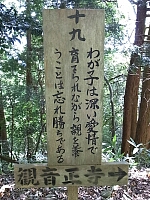 十九
わが子は深い愛情で
育まられながら親を養
うことは忘れ勝ちである
観音正寺→